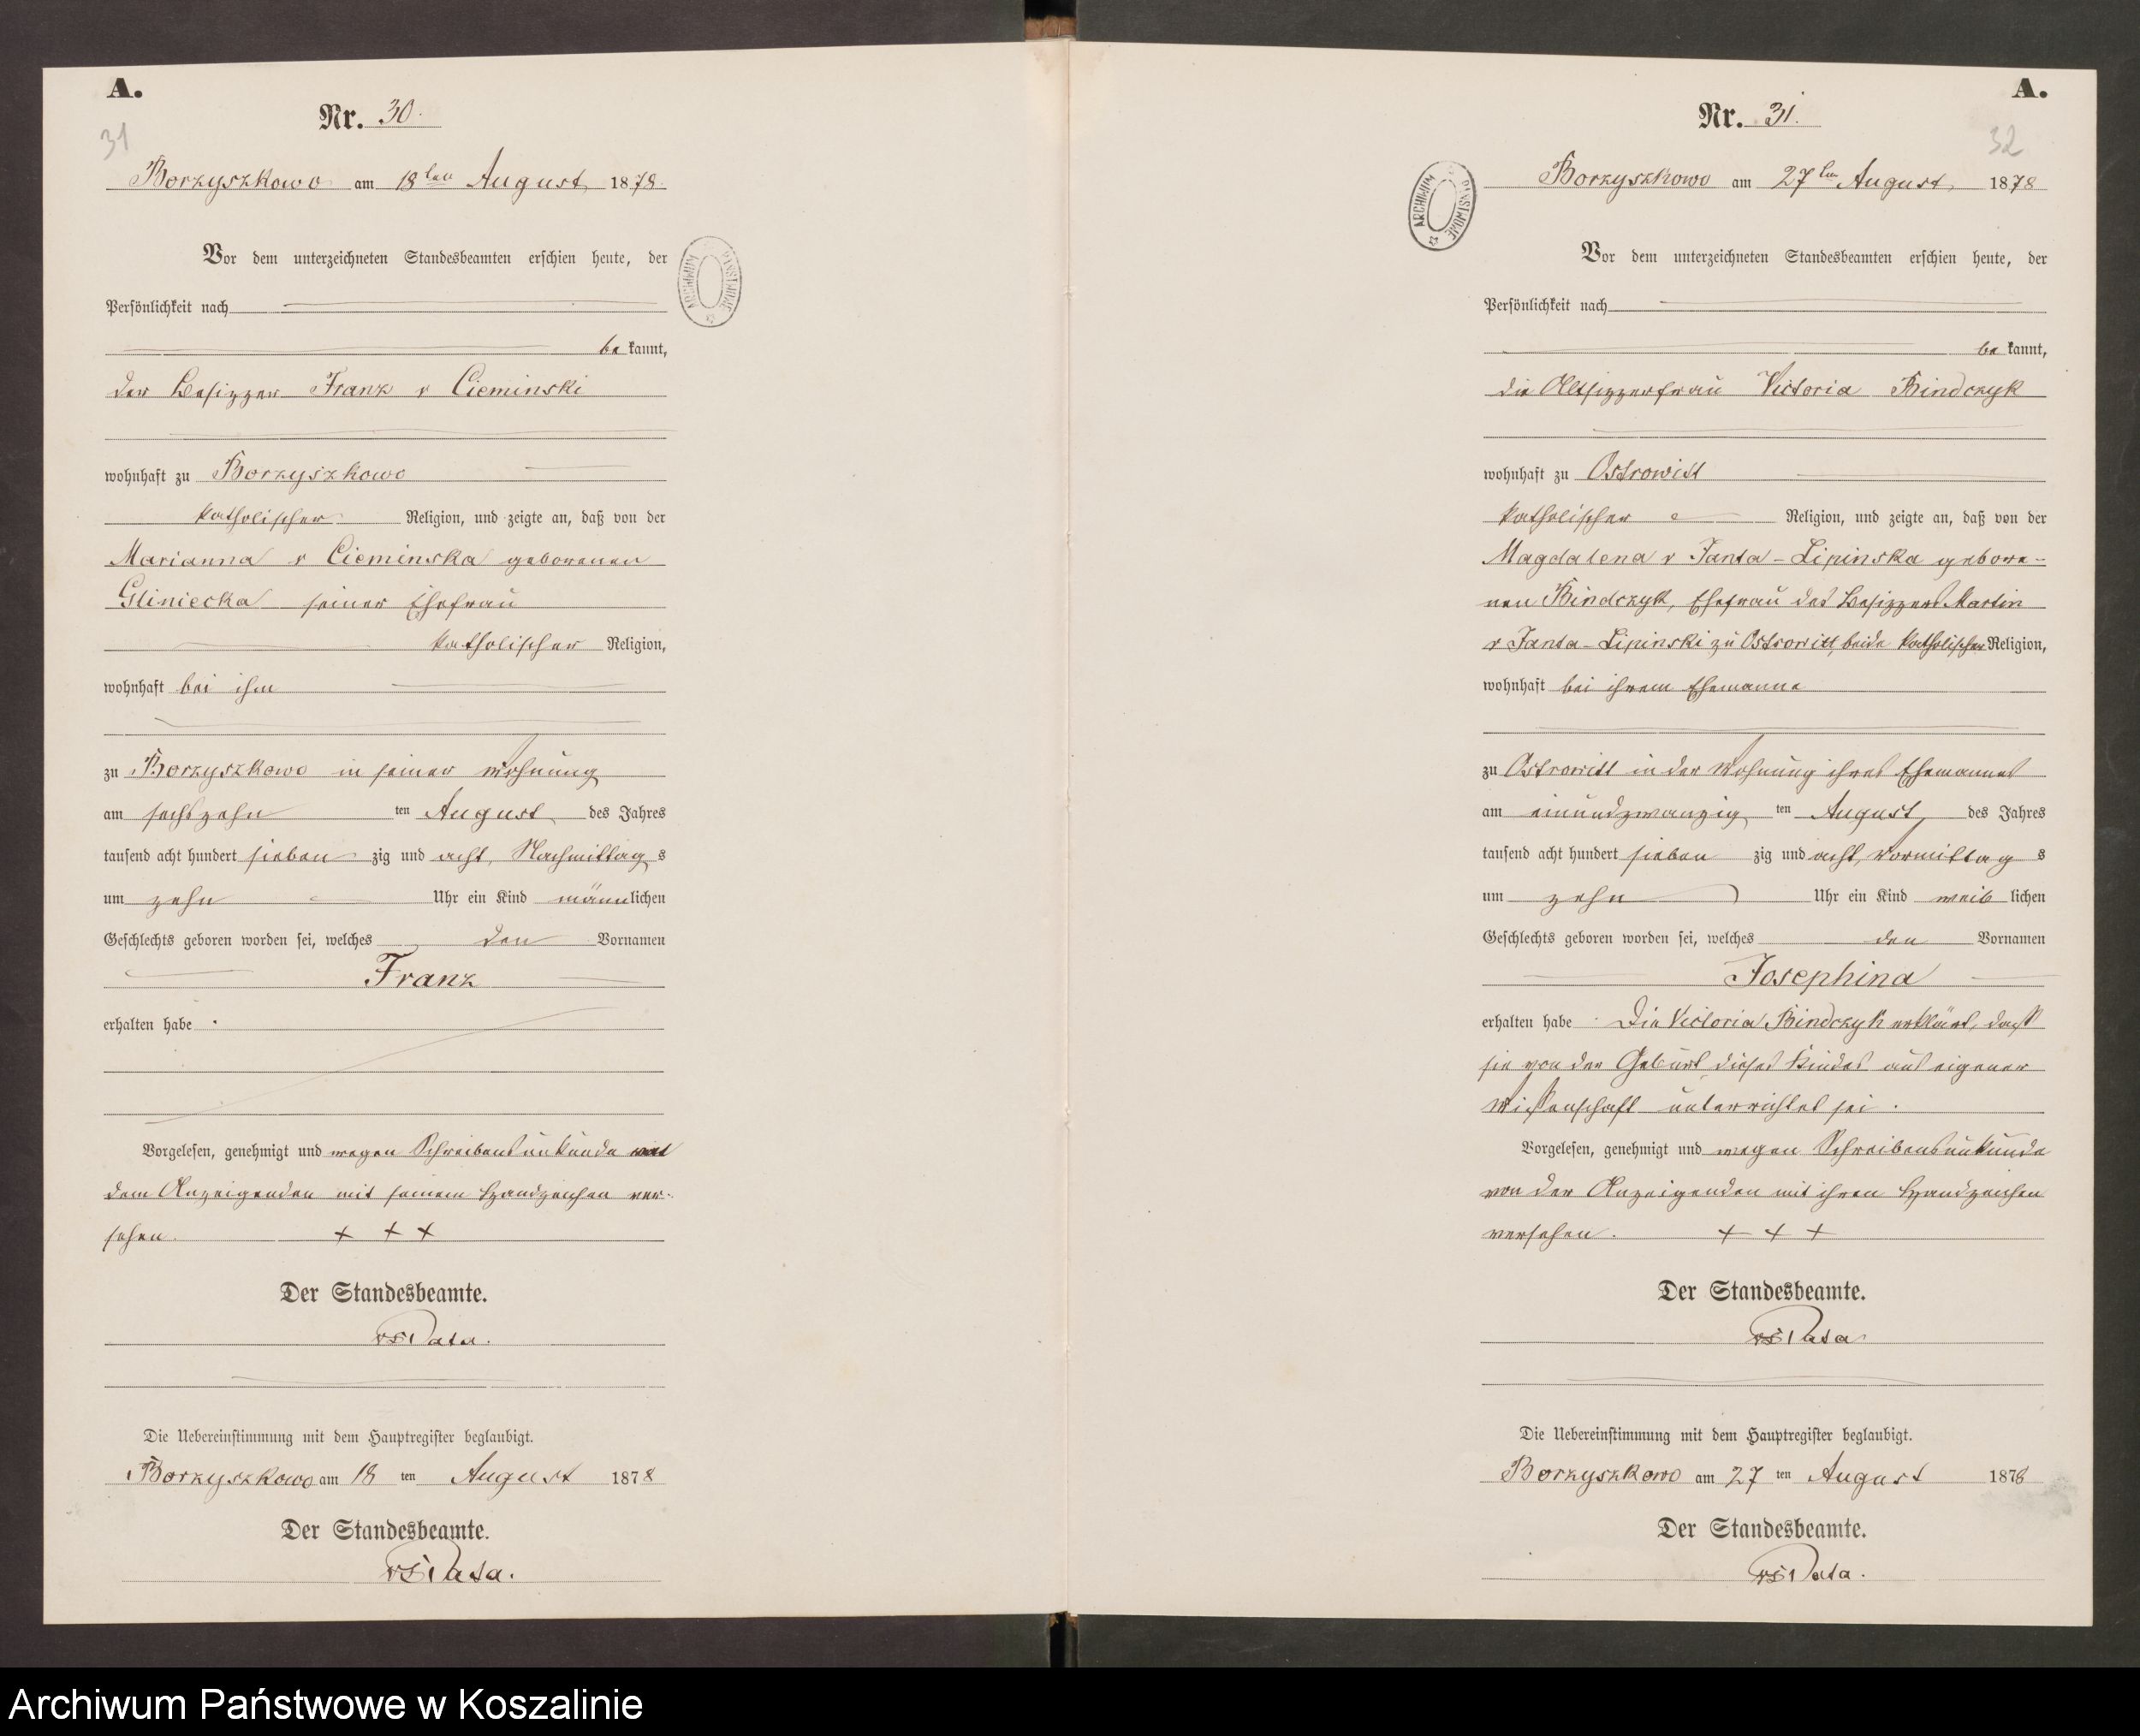 A.
31
Nr. 30.
Borzyszkowo am 18ten August 1878.
Vor dem unterzeichneten Standesbeamten erschien heute, der
Persönlichkeit nach
bekannt,
der Besizzer Franz v Cieminski
wohnhaft zu Borzyszkowo
katholischer Religion, und zeigte an, daß von der
Marianna v Cieminska geborenen
Gliniecka seiner Ehefrau
katholischer Religion,
wohnhaft bei ihm
zu Borzyszkowo in seiner Wohnung
am sechszehn ten August des Jahres
tausend acht hundert sieben zig und acht, Nachmittag s
um zehn Uhr ein Kind männlichen
Geschlechts geboren worden sei, welches den Vornamen
Franz
erhalten habe.
Vorgelesen, genehmigt und wegen Schreibensunkunde
dem Anzeigenden mit seinem Handzeichen ver-
sehen. + + +
Der Standesbeamte.
Die Uebereinstimmung mit dem Hauptregister beglaubigt.
Borzyszkowo am 18 ten August 1878
Der Standesbeamte.
ARCHIWUM PAŃSTWOWE
A.
32
Nr. 31.
Borzyszkowo am 27ten August 1878
Vor dem unterzeichneten Standesbeamten erschien heute, der
Persönlichkeit nach
bekannt,
die Altsizzerfrau Victoria Bindczyk
wohnhaft zu Ostrowitt
katholischer Religion, und zeigte an, daß von der
Magdalena v Janta-Lipinska gebore-
nen Bindczyk, Ehefrau des Besizzers Martin
v Janta-Lipinski zu Ostrowitt, beide katholischer Religion,
wohnhaft bei ihrem Ehemanne
zu Ostrowitt in der Wohnung ihres Ehemannes
am einundzwanzig ten August des Jahres
tausend acht hundert sieben zig und acht, Vormittag s
um zehn Uhr ein Kind weiblichen
Geschlechts geboren worden sei, welches den Vornamen
Josephina
erhalten habe. Die Victoria Bindczyk erklärt, dass
sie von der Geburt dieses Kindes aus eigener
Wissenschaft unterrichtet sei.
Vorgelesen, genehmigt und wegen Schreibensunkunde
von der Anzeigenden mit ihren Handzeichen
versehen. + + +
Der Standesbeamte.
Die Uebereinstimmung mit dem Hauptregister beglaubigt.
Borzyszkowo am 27 ten August 1878
Der Standesbeamte.
ARCHIWUM PAŃSTWOWE
Archiwum Państwowe w Koszalinie